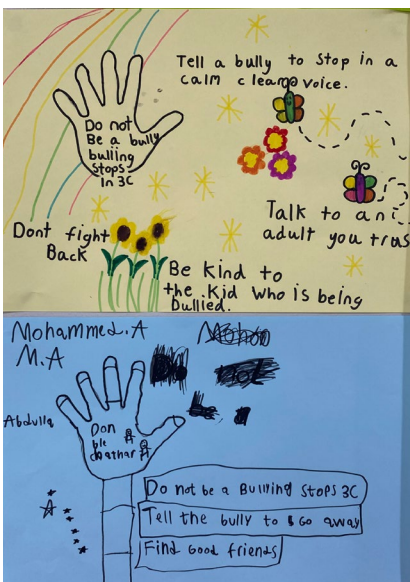 Tell a bully to stop in a
calm clear voice.
Do not
Be a bully
bulling
stops
In 3C
Talk to an
adult you trus
Dont fight
Back
Be kind to
the Kid who is being
bullied.
Mohammed.A
M.A
Abdulla
Don
ble
Do not be a Bulling Stops 3C
Tell the bully to Go away
Find Good friends